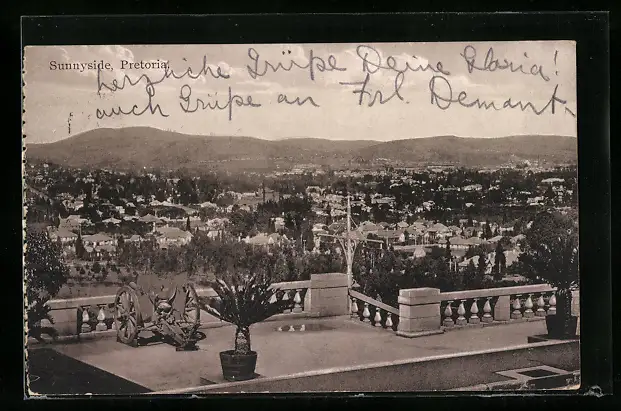 Sunnyside, Pretoria.
herzliche Grüße Deine Gloria!
auch Grüße an Frl. Demant,